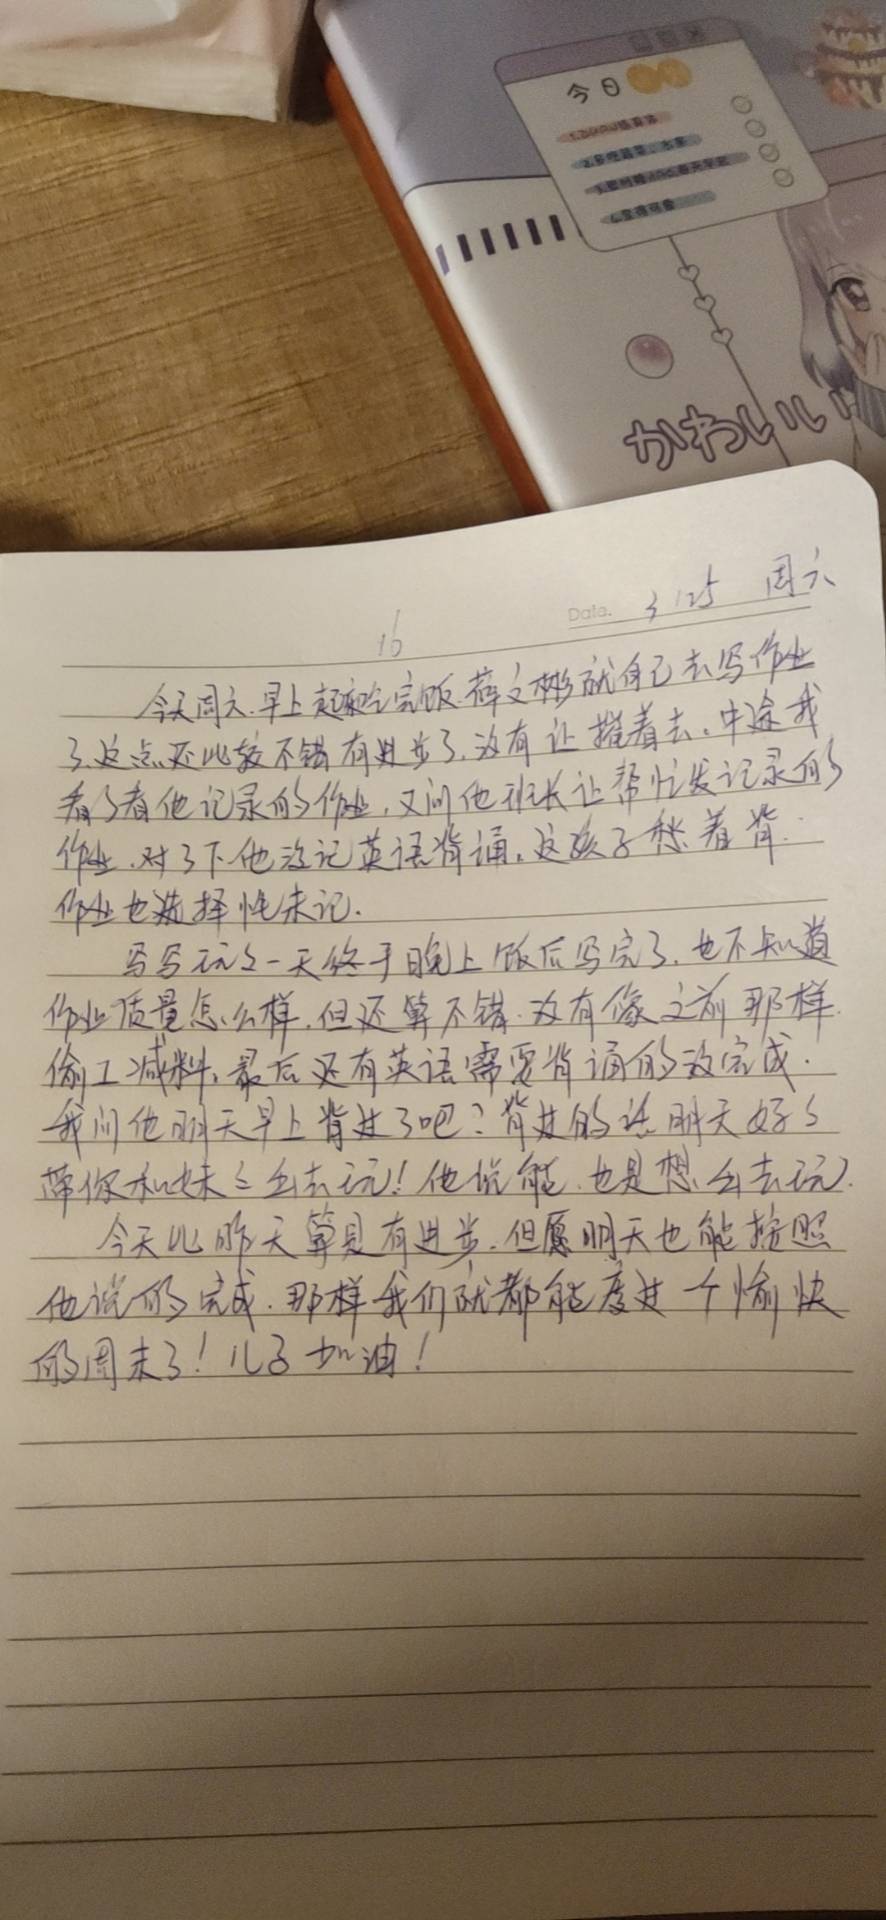 今日
かわいい
Date. 3/25 周六
16
今天周六.早上起来吃完饭.薛文彬就自己去写作业
了.这点还比较不错有进步了.没有让撵着去.中途我
看了看他记录的作业.又问他班长让帮忙发记录的
作业.对了下他没记英语背诵.这孩子愁着背.
作业也选择性未记.
写写玩玩一天终于晚上饭后写完了.也不知道
作业质量怎么样.但还算不错.没有像之前那样
偷工减料.最后还有英语需要背诵的没完成.
我问他明天早上背进了吧?背进的话明天好好
带你和妹妹出去玩!他说能.也是想出去玩.
今天比昨天算是有进步.但愿明天也能按照
他说的完成.那样我们就都能度过一个愉快
的周末了!儿子加油!